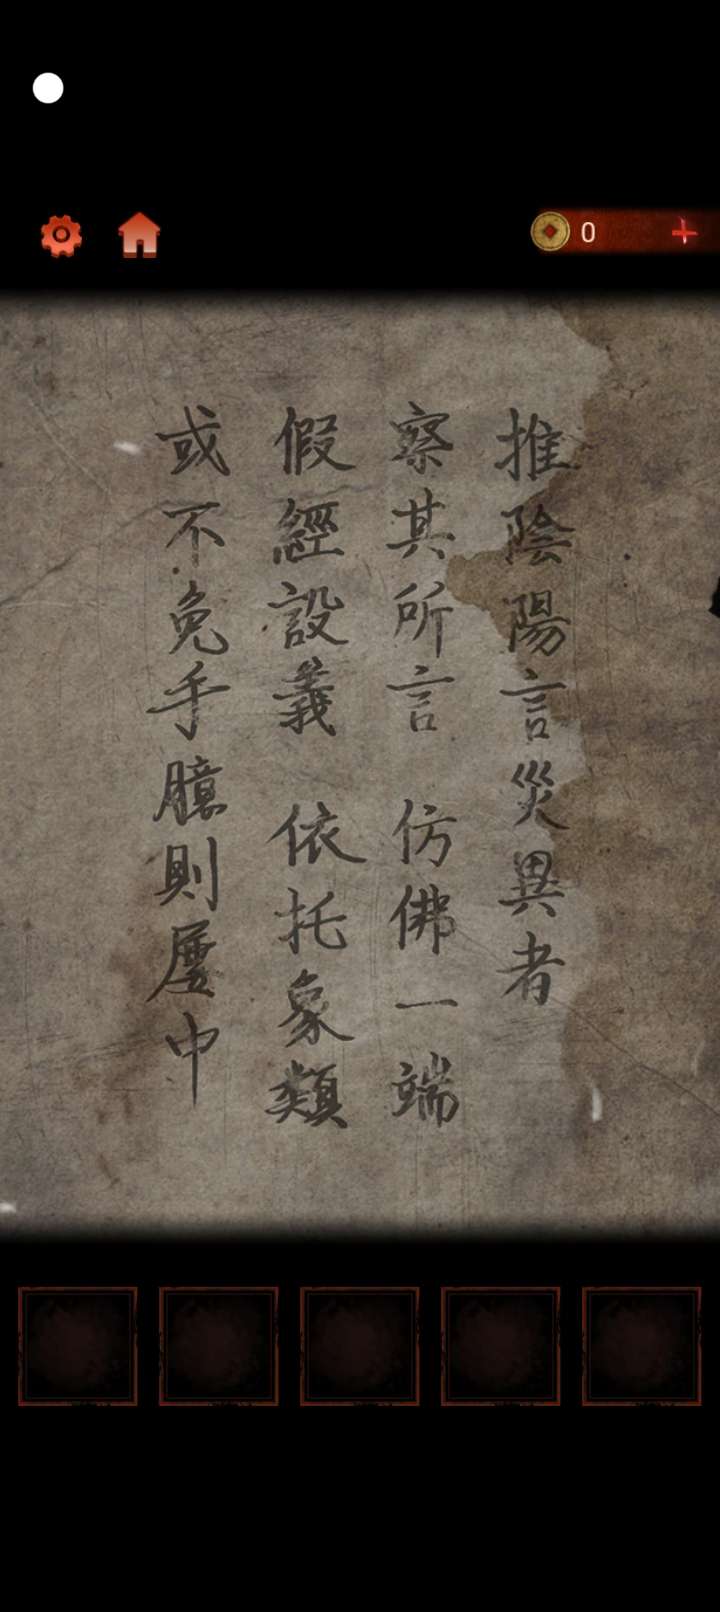 0
推陰陽言災異者
察其所言 仿佛一端
假經設義 依托象類
或不免手臆則屢中